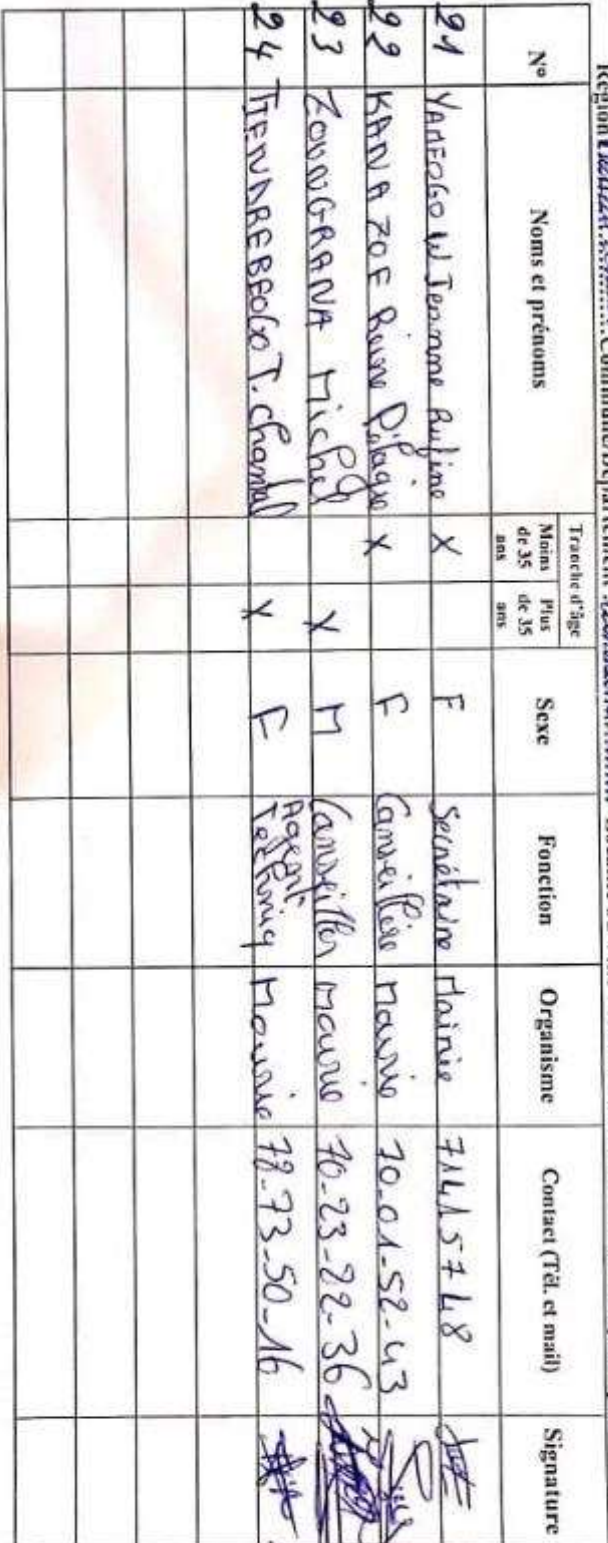 Région Commune/Département
N° Noms et prénoms Tranche d'âge Sexe Fonction Organisme Contact (Tél. et mail) Signature
Moins de 35 ans Plus de 35 ans
21 YAMEOGO W Jeanne Rufine X F Secrétaire Mairie 71415748
22 KANAZOE Reine Pélagie X F Conseillère Mairie 70-01-52-43
23 ZOUNGRANA Michel X M Conseiller Mairie 70-23-22-36
24 TIENDREBEOGO T. Chantal X F Agent Techniq Mairie 78-73-50-16